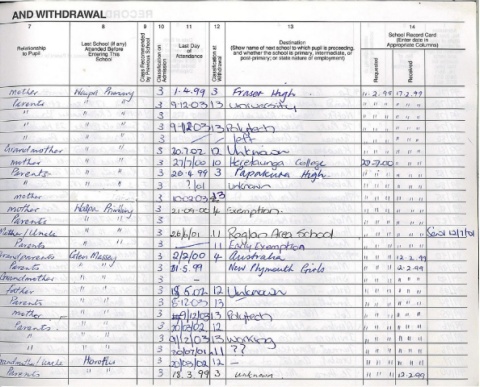 AND WITHDRAWAL
7 8 9 10 11 12 13 14
Relationship to Pupil
Last School (if any) Attended Before Entering This School
Class Recommended by Previous School
Classification on Admission
Last Day of Attendance
Classification at Withdrawal
Destination (Show name of next school to which pupil is proceeding, and whether the school is primary, intermediate, or post primary; or state nature of employment)
School Record Card (Enter date in Appropriate Columns)
Requested
Received
mother Primary 3 1.4.99 3 Fraser High 11.2.99 17.2.99
Parents " " 3 9.12.03 13 University " " " " " "
" " " 3 " " " " " "
" " " 3 9.12.03 13 Polytech " " " " " "
" " " 3 left " " " " " "
Grandmother " " 3 20.7.02 12 Unknown " " " " " "
mother " " 3 27/7/00 10 Heretaunga College 20.7.00 " " "
Parents " " 3 26.4.99 3 Papakura High " " " " " "
" " " 3 ?/01 unknown " " " " " "
mother 3 13 " " " " " "
mother Primary 3 4 Exemption " " " " " "
Parents " " 3 " " " " " "
/Uncle " " 3 26/6/01 11 Raglan Area School " " " " " " Sent
Parents " " 3 11 Early Exemption " " " " " "
Grandparents Glen Massey 3 2/2/00 4 Australia " " " 12.2.99
Parents " " 3 31.5.99 New Plymouth Girls " " " 2.2.99
Grandmother " " 3 " " " " " "
Father " " 3 12 Unknown " " " " " "
Parents " " 3 5.12.03 13 " " " " " "
mother " " 3 9/12/03 13 Polytech " " " " " "
Parents " " 3 12 " " " " " "
" " " 3 9/12/03 13 working " " " " " "
" " " 3 20/07/01 11 ?? " " " " " "
/Uncle Horotiu 3 20/03/02 12 – " " " " " "
Parents " " 3 18.3.99 3 unknown " " " 12.2.99